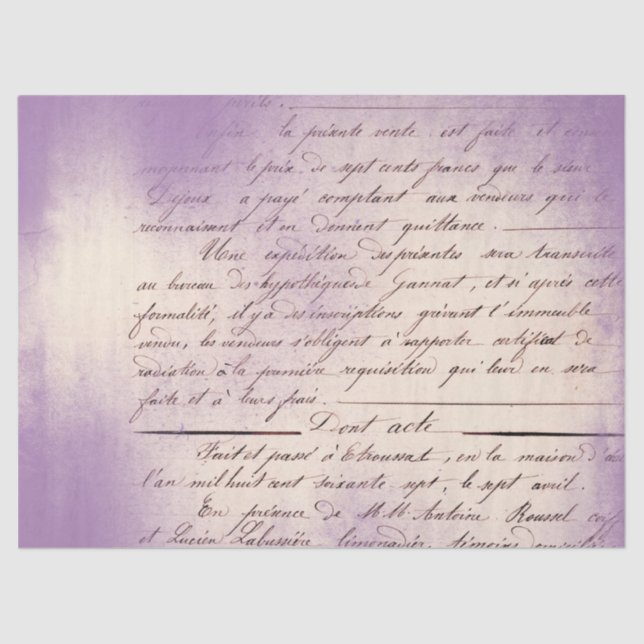 périls.
Enfin la présente vente est faite et
moyennant le prix de sept cents francs que le sieur
Dejoux a payé comptant aux vendeurs qui le
reconnaissent et en donnent quittance.
Une expédition des présentes sera transcrite
au bureau des hypothèques de Gannat, et si après cette
formalité, il y a des inscriptions grévant l'immeuble
vendu, les vendeurs s'obligent à rapporter certificat de
radiation à la première requisition qui leur en sera
faite et à leurs frais.
Dont acte
Fait et passé à Etroussat, en la maison
l'an mil huit cent soixante sept, le sept avril.
En présence de M.M. Antoine Roussel
et Lucien Labussière limonadier, témoins